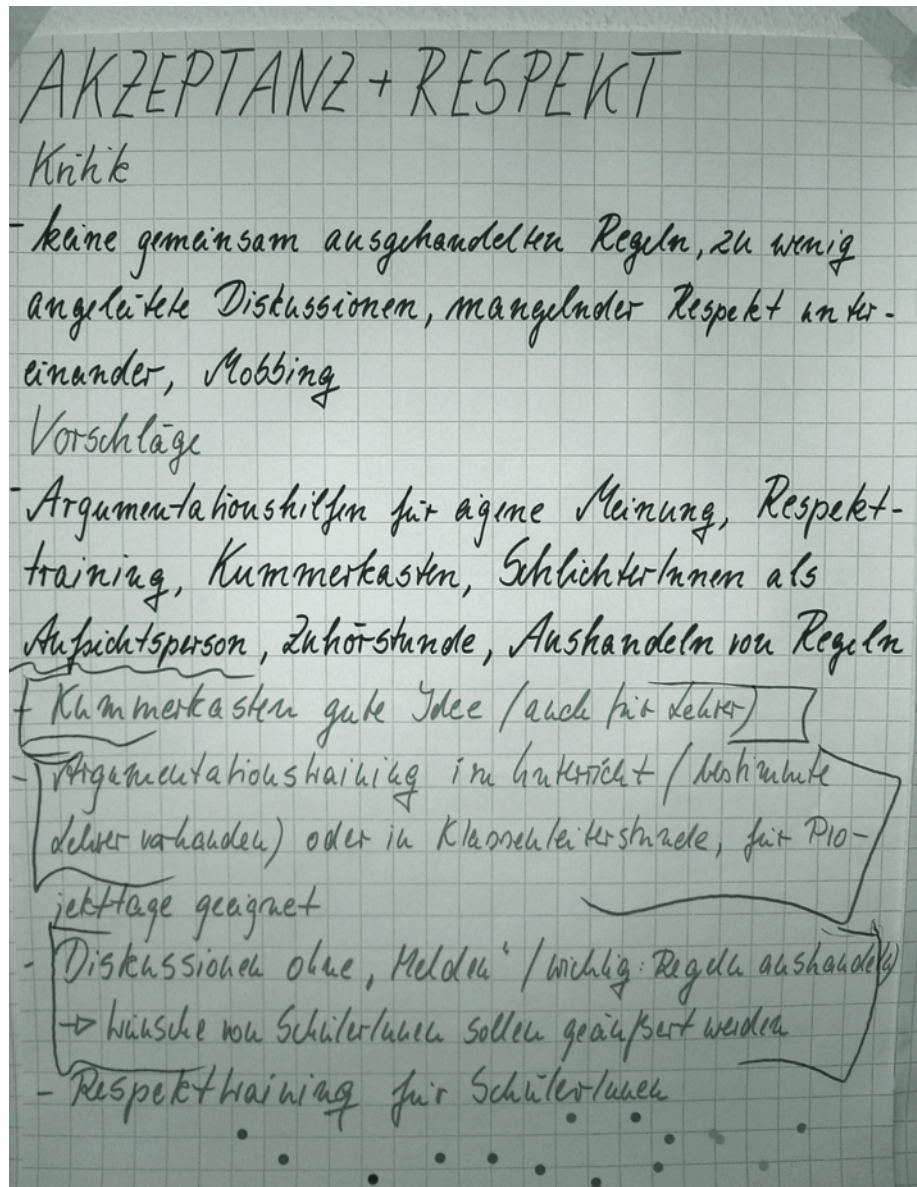 AKZEPTANZ + RESPEKT
Kritik
- keine gemeinsam ausgehandelten Regeln, zu wenig
angeleitete Diskussionen, mangelnder Respekt unter-
einander, Mobbing
Vorschläge
- Argumentationshilfen für eigene Meinung, Respekt-
training, Kummerkasten, SchlichterInnen als
Aufsichtsperson, Zuhörstunde, Aushandeln von Regeln
- Kummerkasten gute Idee (auch für Lehrer)
- Argumentationstraining im Unterricht (bestimmte
Lehrer vorhanden) oder in Klassenleiterstunde, für Pro-
jekttage geeignet
- Diskussionen ohne „Melden" (wichtig: Regeln aushandeln)
→ Wünsche von SchülerInnen sollen geäußert werden
- Respekttraining für SchülerInnen